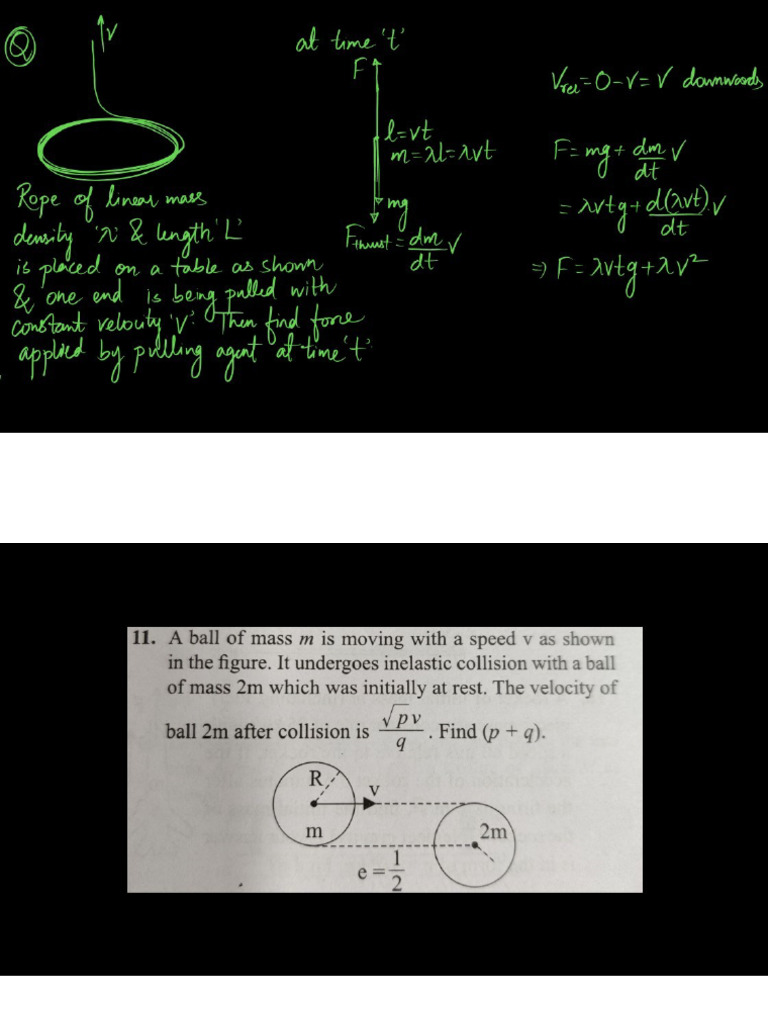 Q
V
Rope of linear mass
density 'λ' & length 'L'
is placed on a table as shown
& one end is being pulled with
constant velouty 'v'. Then find force
applied by pulling agent at time 't'.
at time 't'
F
l=vt
m=λl=λvt
mg
Fthrust = dm/dt V
Vrel = 0-V = V downwoods
F = mg + dm/dt V
= λvtg + d(λvt)/dt . V
⇒ F = λvtg + λv²
11. A ball of mass m is moving with a speed v as shown
in the figure. It undergoes inelastic collision with a ball
of mass 2m which was initially at rest. The velocity of
ball 2m after collision is √p v/q . Find (p + q).
R
v
m
2m
e = 1/2